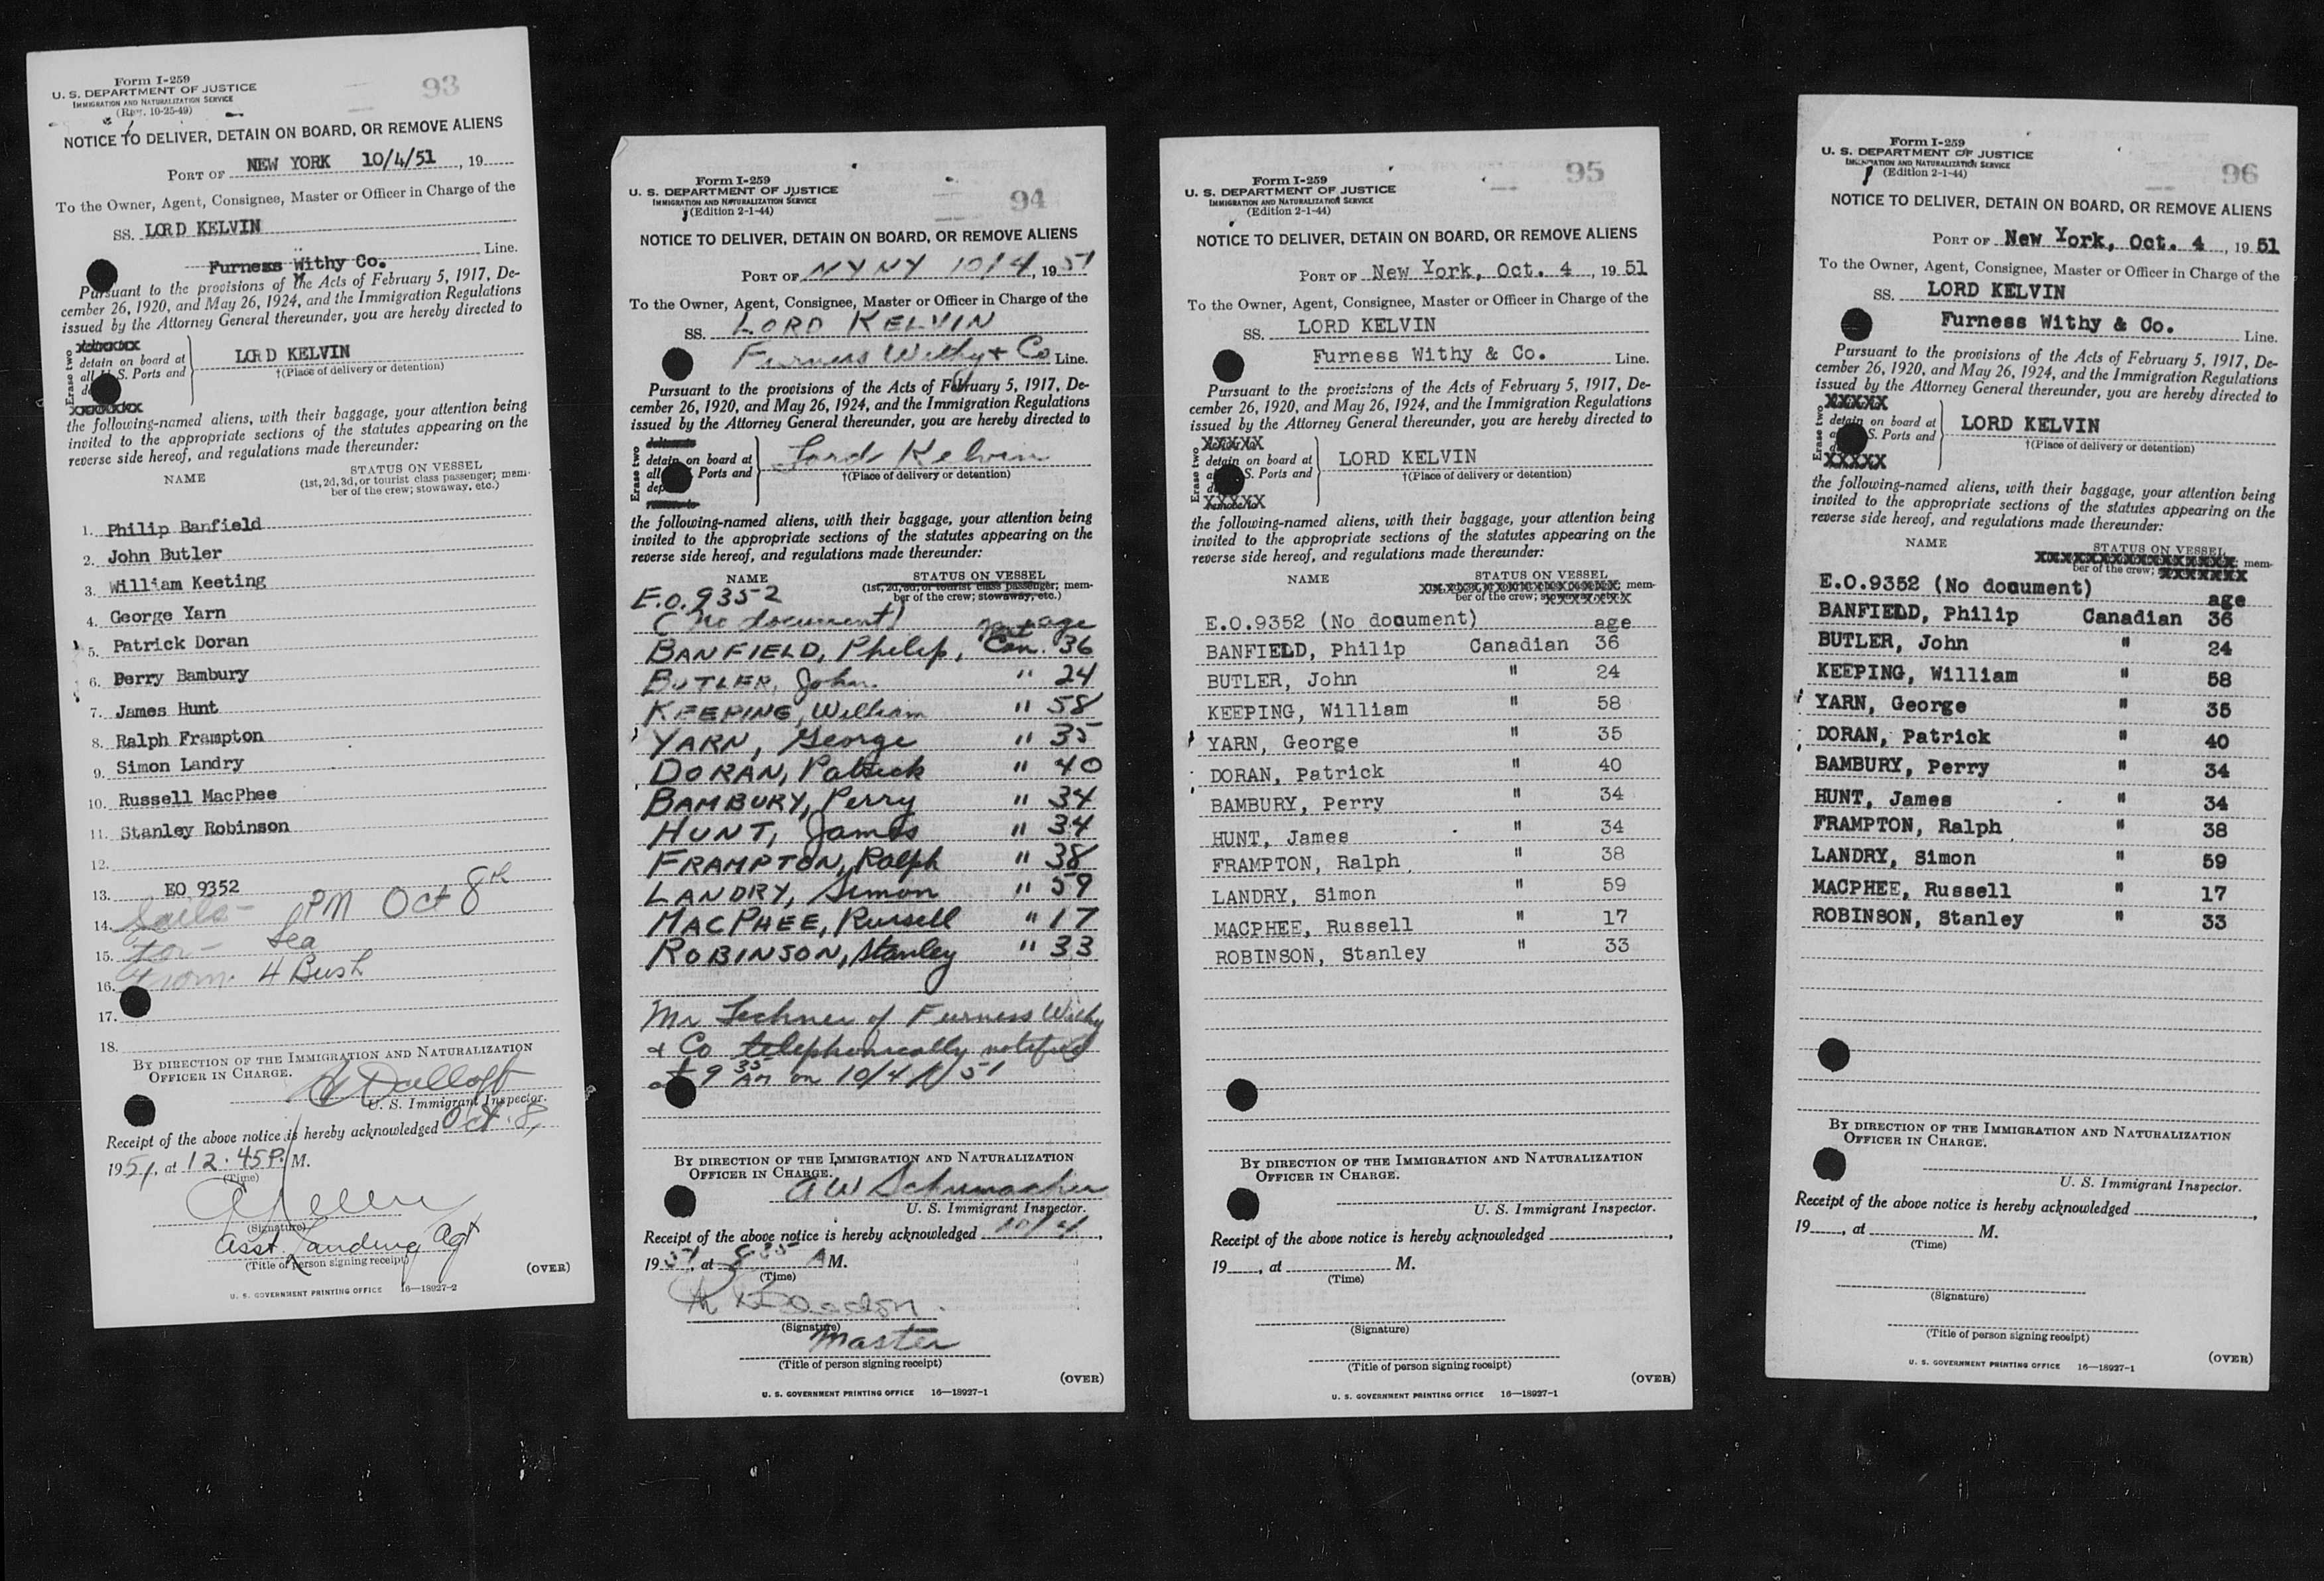 Form I-259
U. S. DEPARTMENT OF JUSTICE
IMMIGRATION AND NATURALIZATION SERVICE
(Rev. 10-25-49)
93
NOTICE TO DELIVER, DETAIN ON BOARD, OR REMOVE ALIENS
PORT OF NEW YORK 10/4/51, 19
To the Owner, Agent, Consignee, Master or Officer in Charge of the
SS. LORD KELVIN
Furness Withy Co. Line.
Pursuant to the provisions of the Acts of February 5, 1917, De-
cember 26, 1920, and May 26, 1924, and the Immigration Regulations
issued by the Attorney General thereunder, you are hereby directed to
Erase two
xxxxxxx
detain on board at
all U.S. Ports and
LORD KELVIN
†(Place of delivery or detention)
xxxxxxx
the following-named aliens, with their baggage, your attention being
invited to the appropriate sections of the statutes appearing on the
reverse side hereof, and regulations made thereunder:
NAME STATUS ON VESSEL
(1st, 2d, 3d, or tourist class passenger; mem-
ber of the crew; stowaway, etc.)
1. Philip Banfield
2. John Butler
3. William Keeting
4. George Yarn
5. Patrick Doran
6. Perry Bambury
7. James Hunt
8. Ralph Frampton
9. Simon Landry
10. Russell MacPhee
11. Stanley Robinson
12.
13. EO 9352
14. Sails- PM Oct 8th
15. For- Sea
16. From. 4 Bush
17.
18.
BY DIRECTION OF THE IMMIGRATION AND NATURALIZATION
OFFICER IN CHARGE.
U. S. Immigrant Inspector.
Receipt of the above notice is hereby acknowledged Oct. 8,
1951, at 12.45 P. M.
(Time)
(Signature)
Asst Landing Agt
(Title of person signing receipt)
(OVER)
U. S. GOVERNMENT PRINTING OFFICE 16—18927-2
Form I-259
U. S. DEPARTMENT OF JUSTICE
IMMIGRATION AND NATURALIZATION SERVICE
(Edition 2-1-44)
94
NOTICE TO DELIVER, DETAIN ON BOARD, OR REMOVE ALIENS
PORT OF NY NY 10/4, 1951
To the Owner, Agent, Consignee, Master or Officer in Charge of the
SS. LORD KELVIN
Furness Withy & Co Line.
Pursuant to the provisions of the Acts of February 5, 1917, De-
cember 26, 1920, and May 26, 1924, and the Immigration Regulations
issued by the Attorney General thereunder, you are hereby directed to
Erase two
deliver to
detain on board at
all Ports and
dep
remove to
Lord Kelvin
†(Place of delivery or detention)
the following-named aliens, with their baggage, your attention being
invited to the appropriate sections of the statutes appearing on the
reverse side hereof, and regulations made thereunder:
NAME STATUS ON VESSEL
(1st, 2d, 3d, or tourist class passenger; mem-
ber of the crew; stowaway, etc.)
E.O. 9352
(No document) nat age
BANFIELD, Philip, Can. 36
BUTLER, John. " 24
KEEPING, William " 58
YARN, George " 35
DORAN, Patrick " 40
BAMBURY, Perry " 34
HUNT, James " 34
FRAMPTON, Ralph " 38
LANDRY, Simon " 59
MACPHEE, Russell " 17
ROBINSON, Stanley " 33
Mr Lechner of Furness Withy
& Co telephonically notified
at 9 35 AM on 10/4/51
BY DIRECTION OF THE IMMIGRATION AND NATURALIZATION
OFFICER IN CHARGE.
A W Schumacher
U. S. Immigrant Inspector.
Receipt of the above notice is hereby acknowledged 10/4,
1951, at 8 35 A M.
(Time)
(Signature)
Master
(Title of person signing receipt)
(OVER)
U. S. GOVERNMENT PRINTING OFFICE 16—18927-1
Form I-259
U. S. DEPARTMENT OF JUSTICE
IMMIGRATION AND NATURALIZATION SERVICE
(Edition 2-1-44)
95
NOTICE TO DELIVER, DETAIN ON BOARD, OR REMOVE ALIENS
PORT OF New York, Oct. 4, 1951
To the Owner, Agent, Consignee, Master or Officer in Charge of the
SS. LORD KELVIN
Furness Withy & Co. Line.
Pursuant to the provisions of the Acts of February 5, 1917, De-
cember 26, 1920, and May 26, 1924, and the Immigration Regulations
issued by the Attorney General thereunder, you are hereby directed to
Erase two
XXXXX
detain on board at
S. Ports and
LORD KELVIN
†(Place of delivery or detention)
XXXXX
the following-named aliens, with their baggage, your attention being
invited to the appropriate sections of the statutes appearing on the
reverse side hereof, and regulations made thereunder:
NAME STATUS ON VESSEL
mem-
ber of the crew; XXXXXXX
E.O.9352 (No document) age
BANFIELD, Philip Canadian 36
BUTLER, John " 24
KEEPING, William " 58
YARN, George " 35
DORAN, Patrick " 40
BAMBURY, Perry " 34
HUNT, James " 34
FRAMPTON, Ralph " 38
LANDRY, Simon " 59
MACPHEE, Russell " 17
ROBINSON, Stanley " 33
BY DIRECTION OF THE IMMIGRATION AND NATURALIZATION
OFFICER IN CHARGE.
U. S. Immigrant Inspector.
Receipt of the above notice is hereby acknowledged
19, at M.
(Time)
(Signature)
(Title of person signing receipt)
(OVER)
U. S. GOVERNMENT PRINTING OFFICE 16—18927-1
Form I-259
U. S. DEPARTMENT OF JUSTICE
IMMIGRATION AND NATURALIZATION SERVICE
(Edition 2-1-44)
96
NOTICE TO DELIVER, DETAIN ON BOARD, OR REMOVE ALIENS
PORT OF New York, Oct. 4, 1951
To the Owner, Agent, Consignee, Master or Officer in Charge of the
SS. LORD KELVIN
Furness Withy & Co. Line.
Pursuant to the provisions of the Acts of February 5, 1917, De-
cember 26, 1920, and May 26, 1924, and the Immigration Regulations
issued by the Attorney General thereunder, you are hereby directed to
Erase two
XXXXX
detain on board at
S. Ports and
LORD KELVIN
†(Place of delivery or detention)
XXXXX
the following-named aliens, with their baggage, your attention being
invited to the appropriate sections of the statutes appearing on the
reverse side hereof, and regulations made thereunder:
NAME STATUS ON VESSEL
mem-
ber of the crew; XXXXXXX
E.O.9352 (No document) age
BANFIELD, Philip Canadian 36
BUTLER, John " 24
KEEPING, William " 58
YARN, George " 35
DORAN, Patrick " 40
BAMBURY, Perry " 34
HUNT, James " 34
FRAMPTON, Ralph " 38
LANDRY, Simon " 59
MACPHEE, Russell " 17
ROBINSON, Stanley " 33
BY DIRECTION OF THE IMMIGRATION AND NATURALIZATION
OFFICER IN CHARGE.
U. S. Immigrant Inspector.
Receipt of the above notice is hereby acknowledged
19, at M.
(Time)
(Signature)
(Title of person signing receipt)
(OVER)
U. S. GOVERNMENT PRINTING OFFICE 16—18927-1